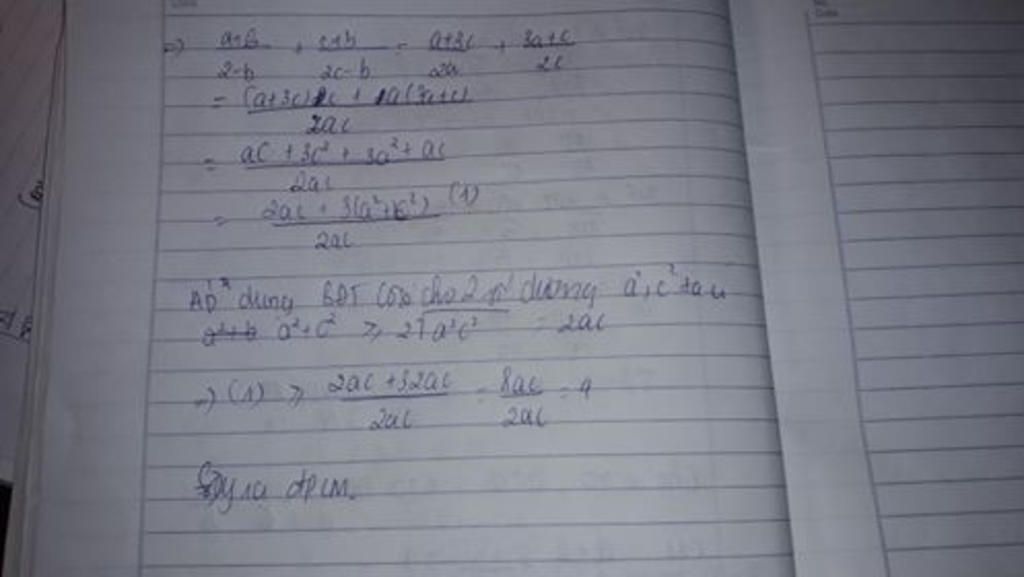 => (a+b)/(2-b) + (c+b)/(2c-b) = (a+3c)/(2a) + (3a+c)/(2c)
= ((a+3c)c + a(3a+c))/(2ac)
= (ac + 3c² + 3a² + ac)/(2ac)
= (2ac + 3(a²+c²))/(2ac) (1)
dụng BĐT Côsi cho 2 số dương a², c² ta có
a²+c² ≥ 2√a²c² = 2ac
=> (1) ≥ (2ac + 3.2ac)/(2ac) = 8ac/2ac = 4
đpcm.